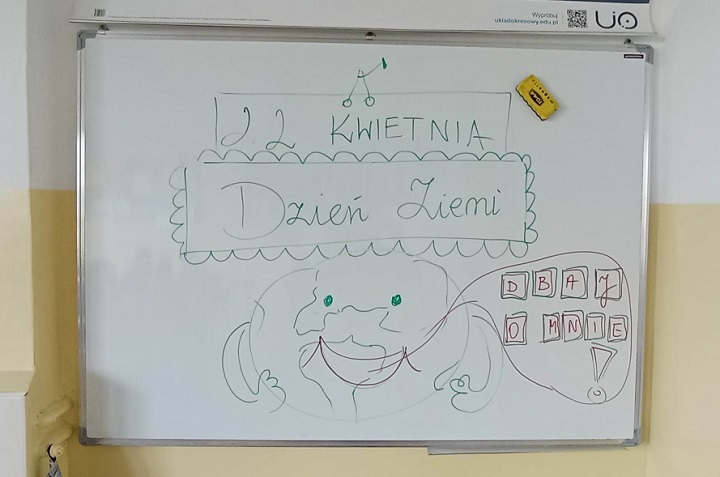 Wypróbuj
ukladokresowy.edu.pl
22 KWIETNIA
Dzień Ziemi
DBAJ
O MNIE
!